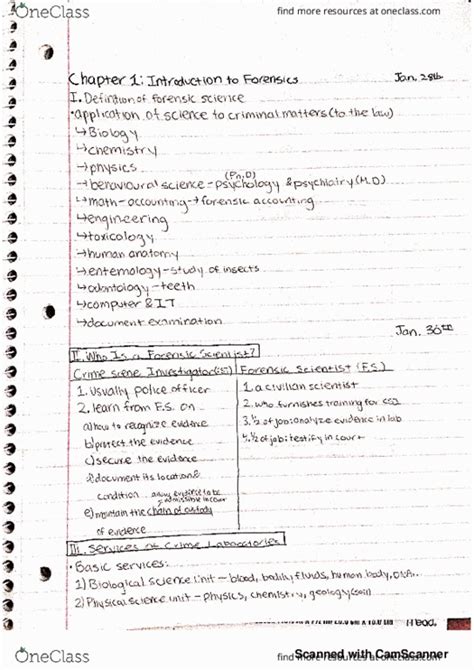 OneClass
find more resources at oneclass.com
Chapter 1: Introduction to Forensics Jan. 28th
I. Definition of forensic science
•application of science to criminal matters (to the law)
↳Biology
↳chemistry
↳physics
(Ph.D)
↳behavioural science - psychology & psychiatry (M.D)
↳math - accounting → forensic accounting
↳engineering
↳toxicology
↳human anatomy
↳entemology - study of insects
↳odontology - teeth
↳computer & IT
↳document examination
Jan. 30th
II. Who Is a Forensic Scientist?
Crime Scene Investigator (CSI) Forensic Scientist (F.S.)
1. usually police officer 1. a civilian scientist
2. learn from F.S. on 2. who furnishes training for CSI
a) how to recognize evidence 3. ½ of job: analyze evidence in lab
b) protect the evidence 4. ½ of job: testify in court
c) secure the evidence
d) document its location &
condition allow evidence to be
admissible in court
e) maintain the chain of custody
of evidence
III. Services of Crime Laboratories
•Basic services:
1) Biological science unit - blood, bodily fluids, human body, DNA..
2) Physical science unit - physics, chemistry, geology (soil)
Hilroy
Scanned with CamScanner
OneClass
find more resources at oneclass.com